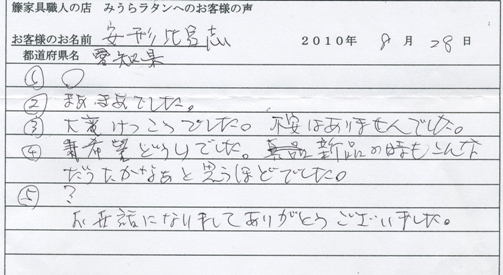 籐家具職人の店　みうらラタンへのお客様の声
お客様のお名前　安形比呂志　2010年　8月　28日
都道府県名　愛知県
① ○
② まあまあでした。
③ 大変けっこうでした。不安はありませんでした。
④ 希望どおりでした。新品の時もこんな
だったかなあと思うほどでした。
⑤ ?
お世話になりましてありがとうございました。